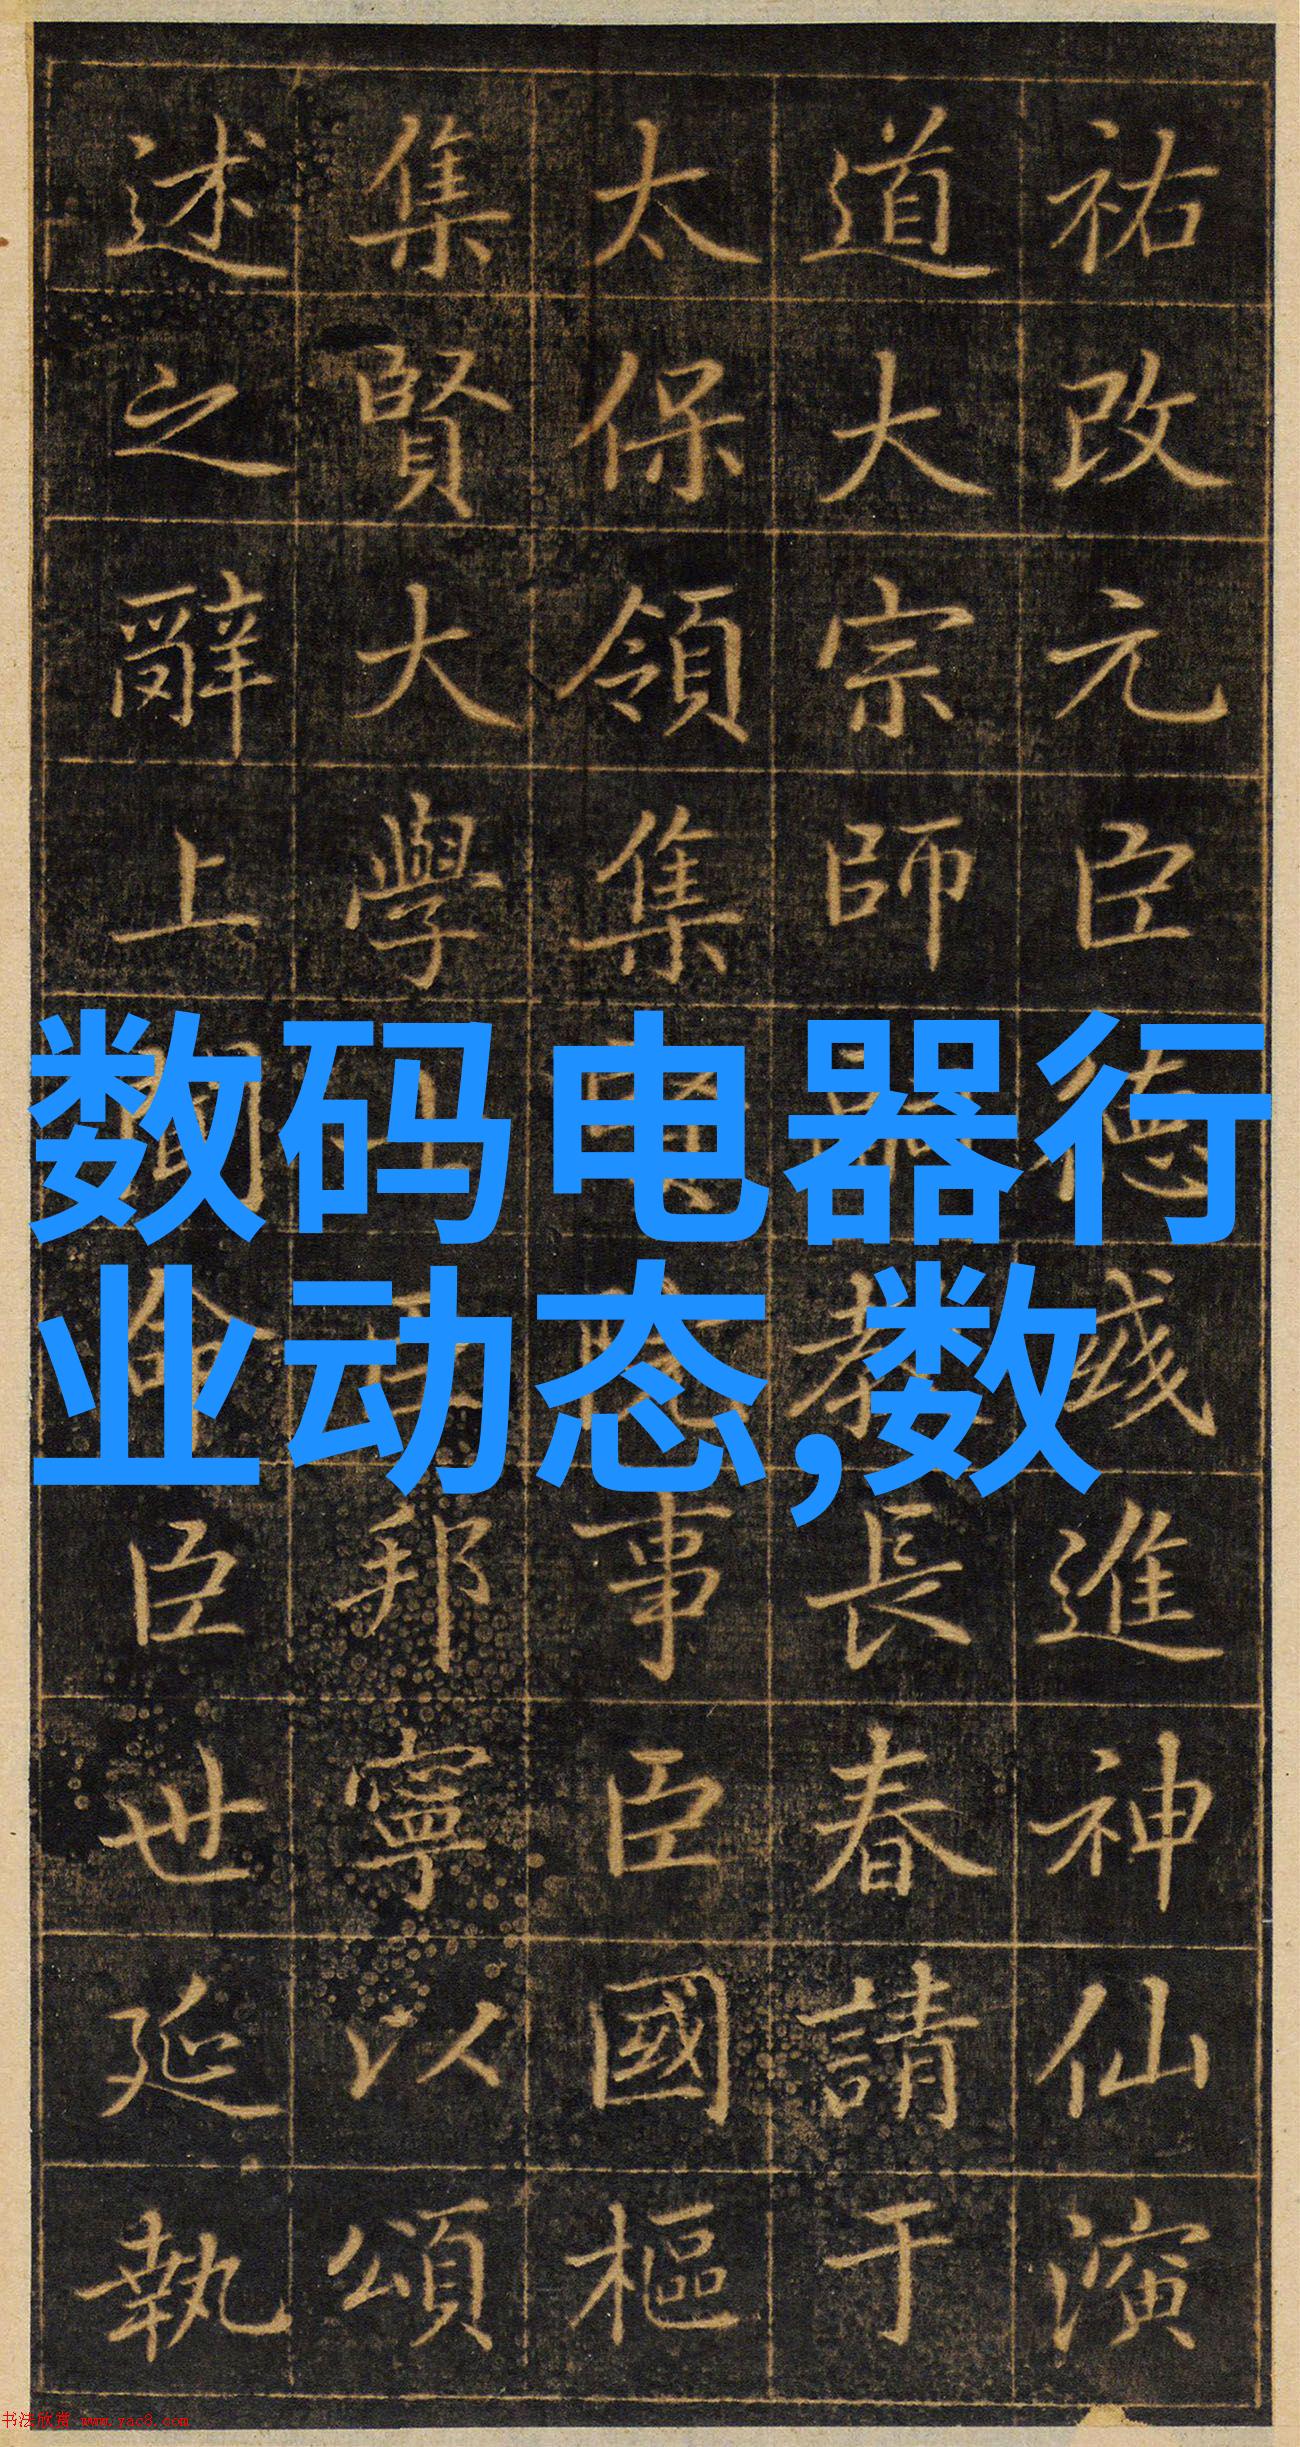 祐改元臣德彧進神仙演
道大宗師教長春請于
太保領集賢院事臣國樞
集賢大學邦寧以頌
述之辭上聞命臣世延執
数码电器行
业动态,数
书法欣赏 www.yac8.com